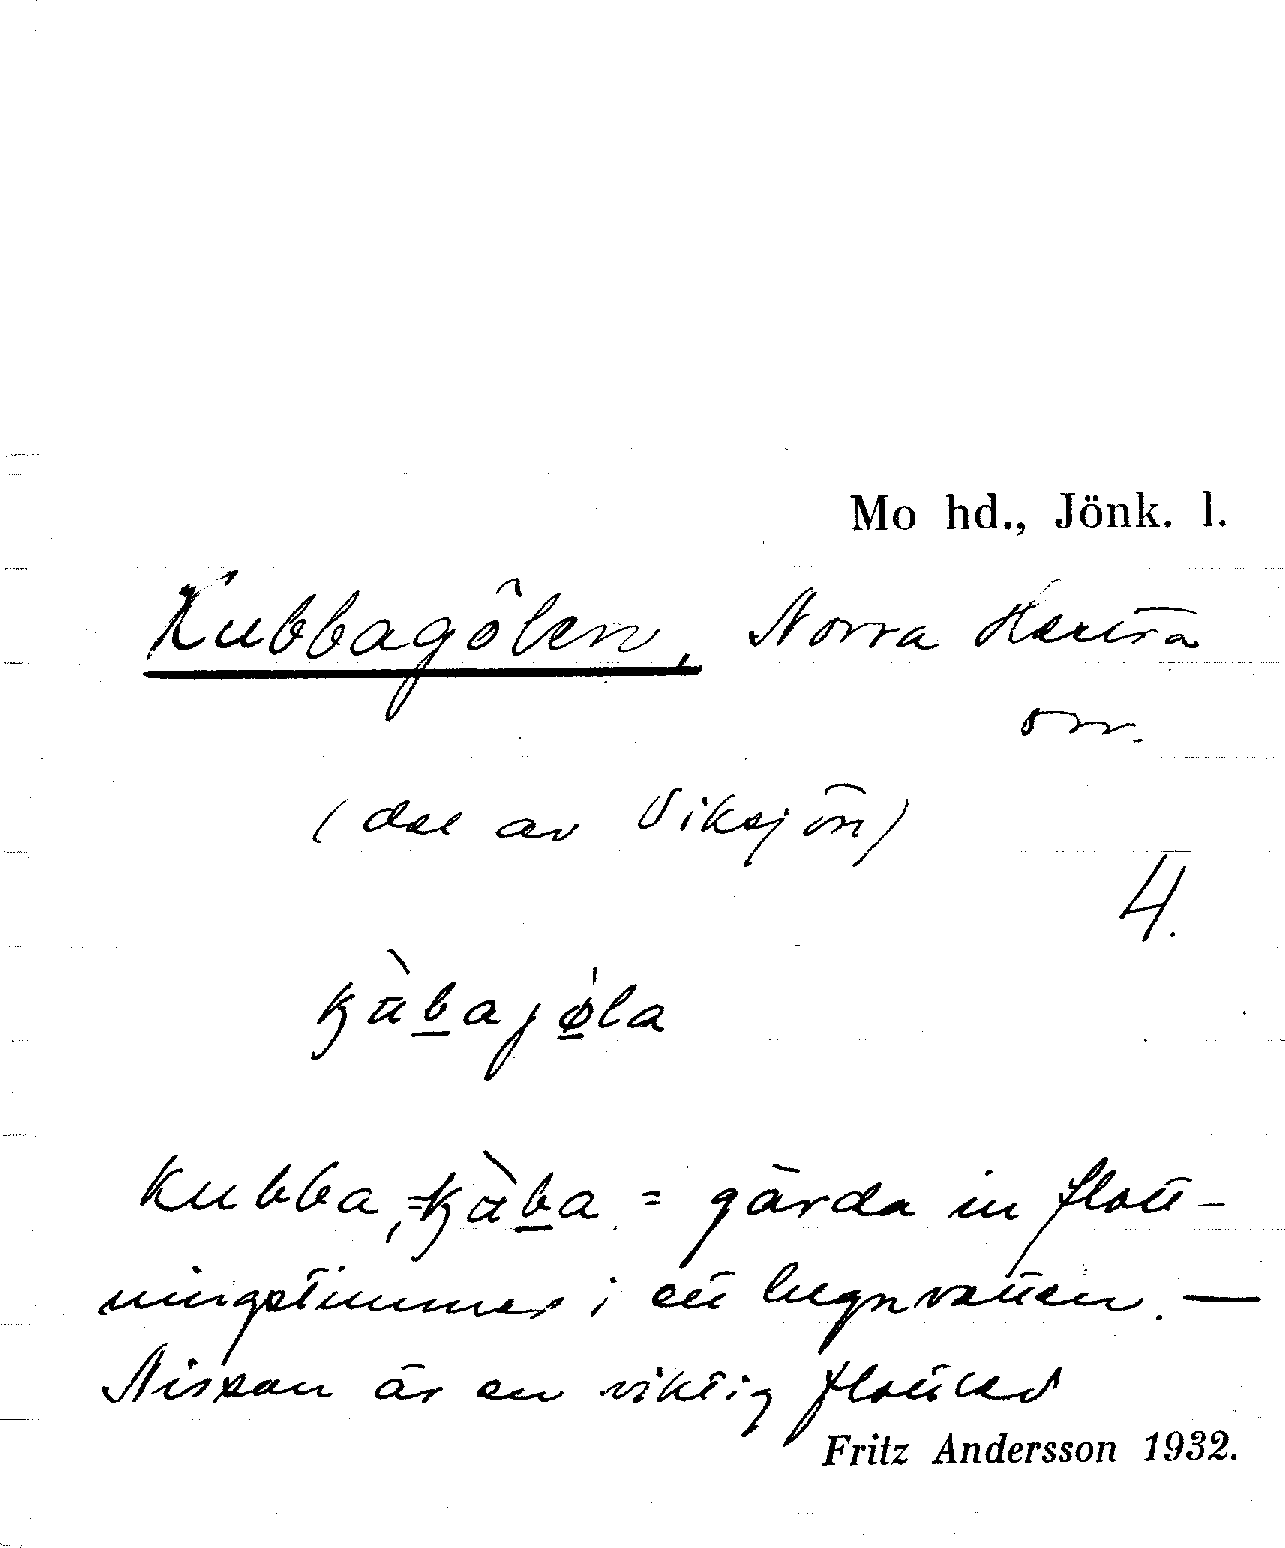 Mo hd., Jönk. l.
Kubbagölen, Norra Hestra
(del av Viksjön)
4.
Kubba, = gärda in flott-
ningstimmer i ett lugnvatten. —
Nissan är en viktig flottled
Fritz Andersson 1932.